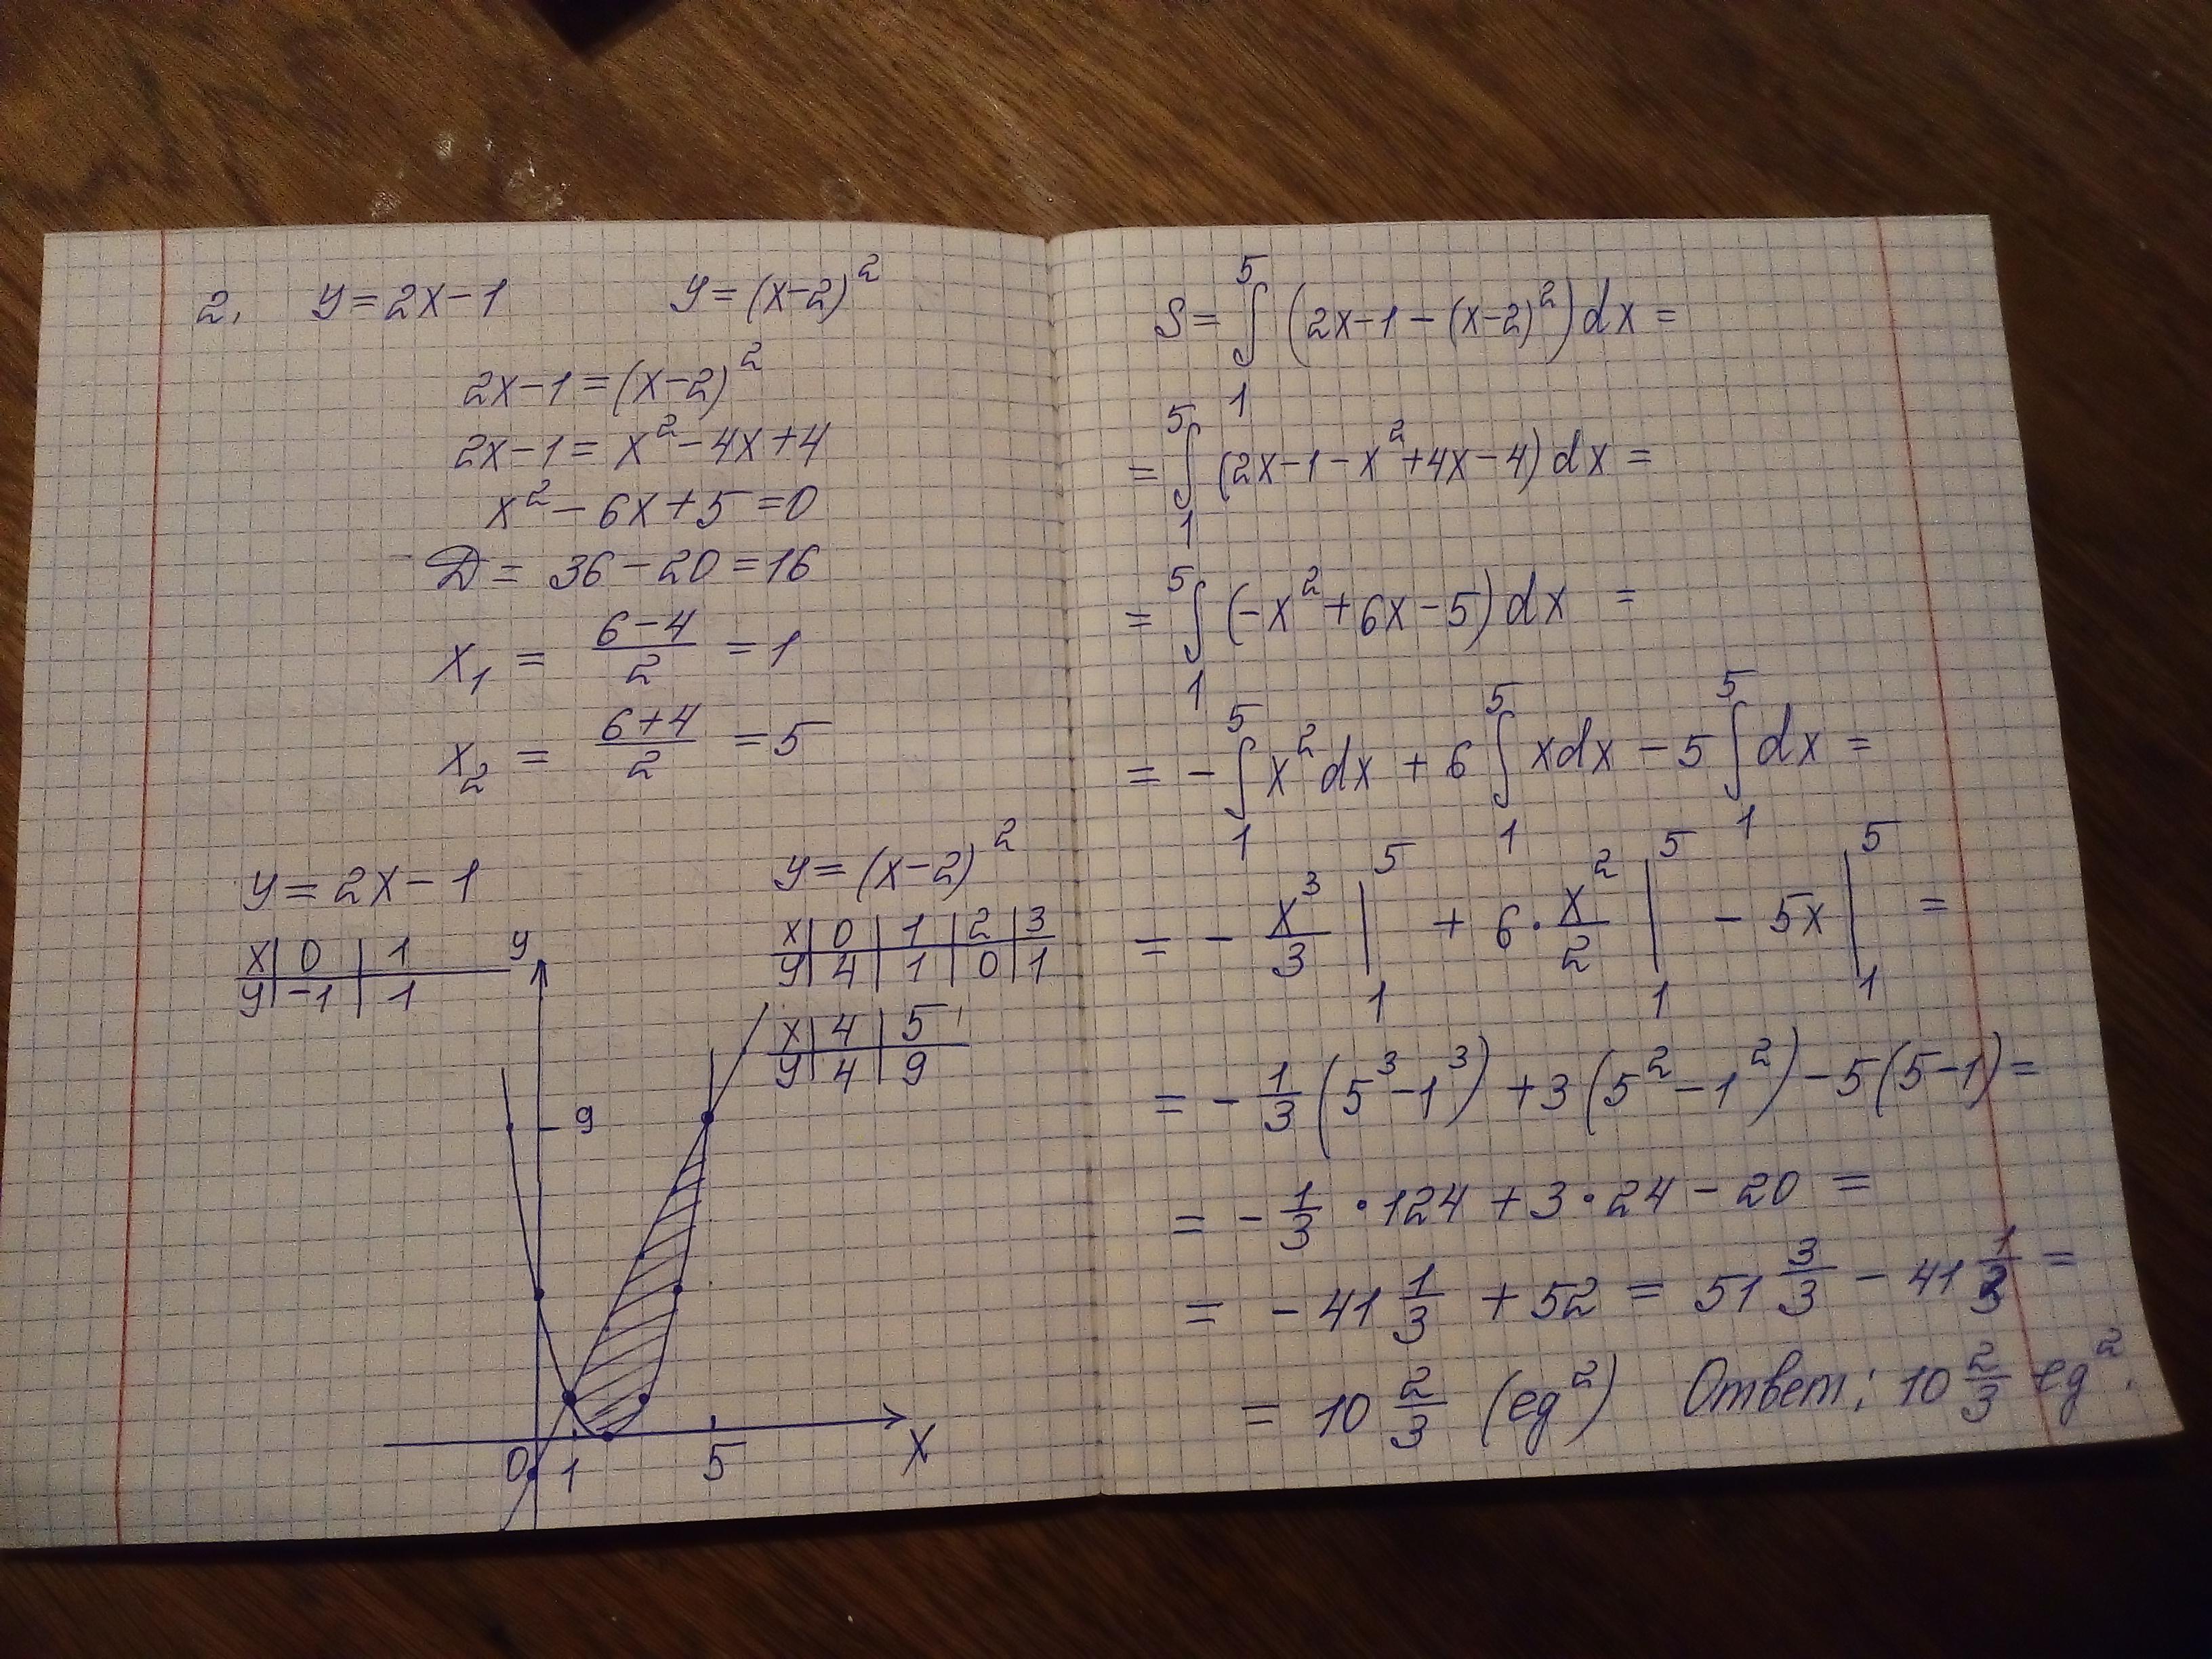 2. y=2x-1 y=(x-2)²
2x-1=(x-2)²
2x-1=x²-4x+4
x²-6x+5=0
D=36-20=16
x₁ = (6-4)/2 = 1
x₂ = (6+4)/2 = 5
y=2x-1
x | 0 | 1
y | -1 | 1
y=(x-2)²
x | 0 | 1 | 2 | 3
y | 4 | 1 | 0 | 1
x | 4 | 5
y | 4 | 9
y
9
0 1 5 x
S= ∫₁⁵ (2x-1-(x-2)²)dx =
= ∫₁⁵ (2x-1-x²+4x-4)dx =
= ∫₁⁵ (-x²+6x-5)dx =
= -∫₁⁵ x²dx + 6∫₁⁵ xdx - 5∫₁⁵ dx =
= - x³/3 |₁⁵ + 6·x²/2 |₁⁵ - 5x |₁⁵ =
= - 1/3 (5³-1³) + 3(5²-1²) - 5(5-1) =
= - 1/3 · 124 + 3·24 - 20 =
= - 41 1/3 + 52 = 51 3/3 - 41 1/3 =
= 10 2/3 (ед²) Ответ: 10 2/3 ед².